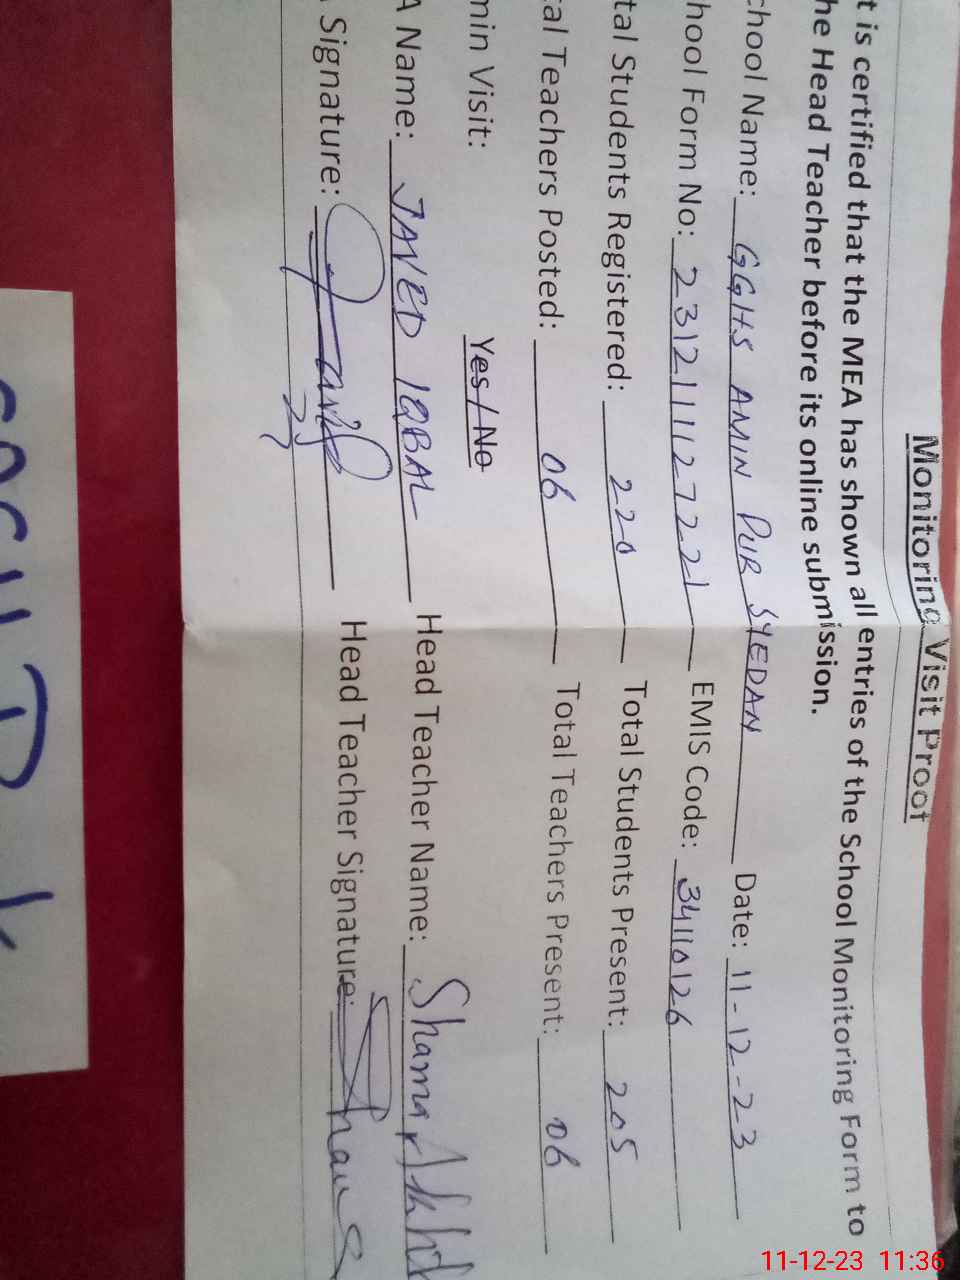 Monitoring Visit Proof
t is certified that the MEA has shown all entries of the School Monitoring Form to
he Head Teacher before its online submission.
chool Name: GGHS AMIN PUR SYEDAN Date: 11-12-23
hool Form No: 231211127221 EMIS Code: 34110126
tal Students Registered: 220 Total Students Present: 205
tal Teachers Posted: 06 Total Teachers Present: 06
min Visit: Yes / No
A Name: JAVED IQBAL Head Teacher Name: Shama
Signature: Head Teacher Signature:
11-12-23 11:36